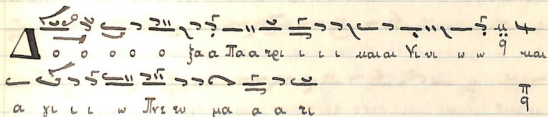 Δ ο ο ο ο ο ξα α Πα α τρι ι ι ι και αι Υι υι ω ω και
α γι ι ι ω Πνε υ μα α α τι